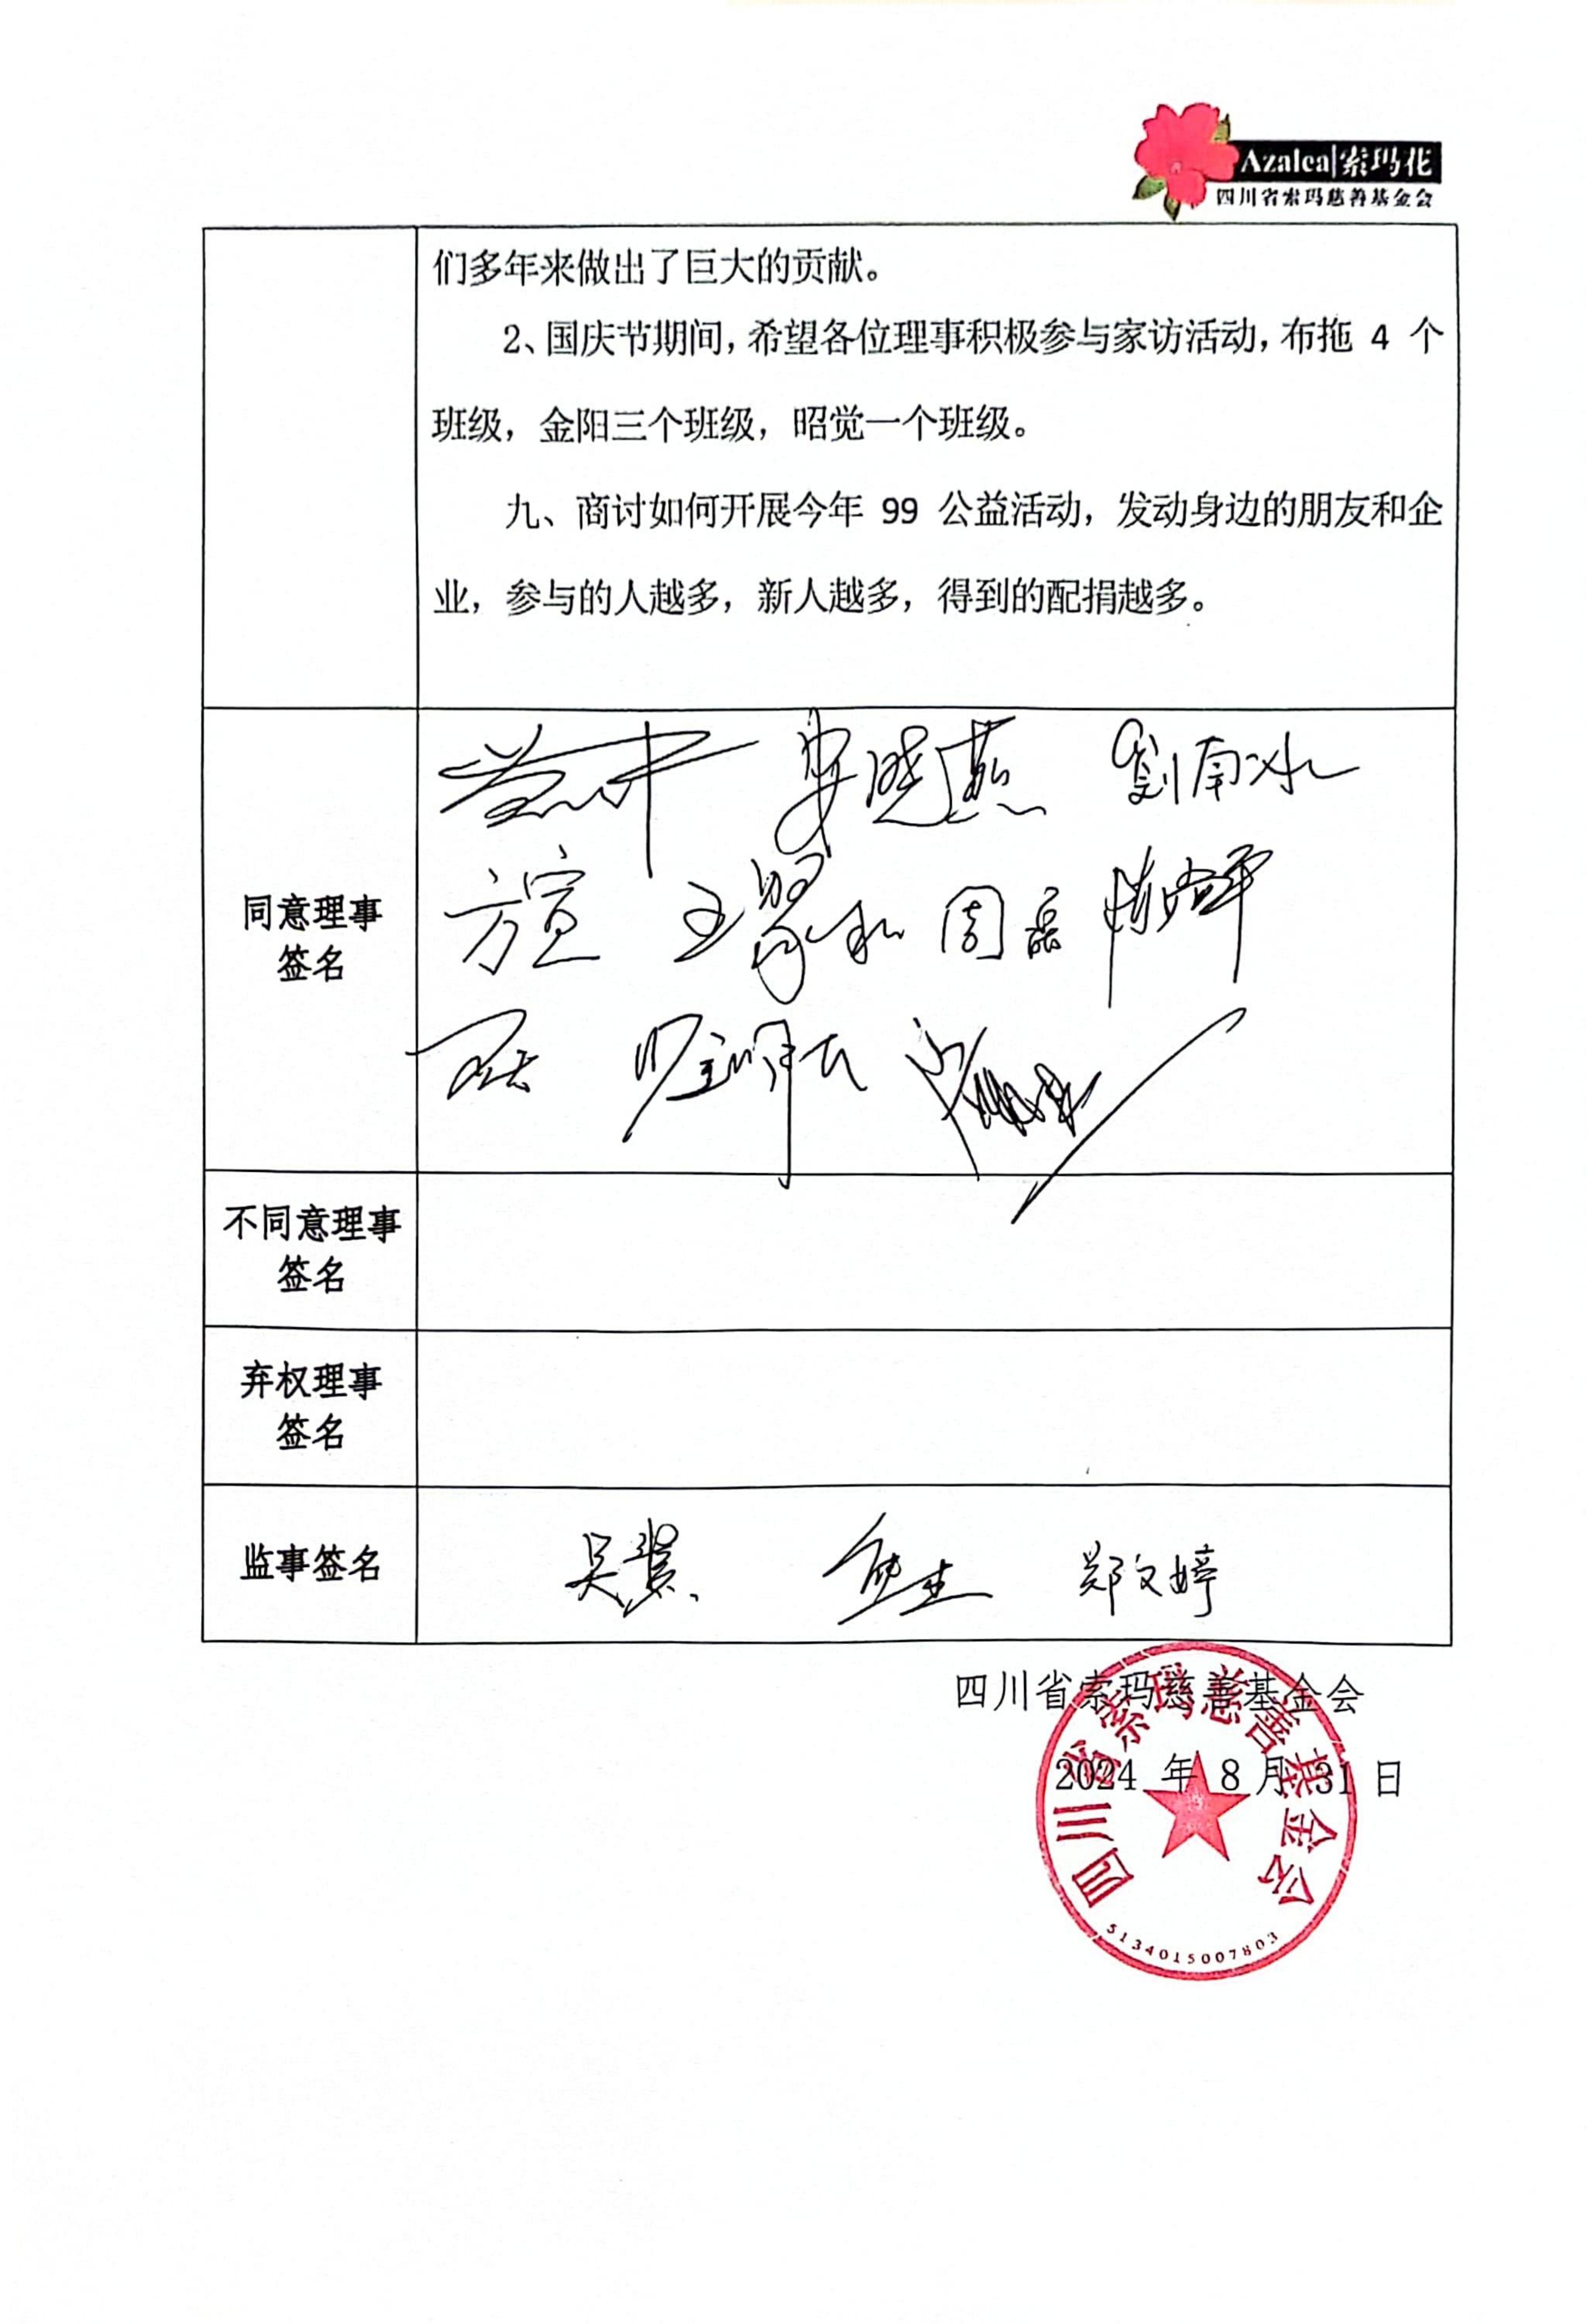 Azalea|索玛花
四川省索玛慈善基金会
们多年来做出了巨大的贡献。
2、国庆节期间,希望各位理事积极参与家访活动,布拖 4 个
班级，金阳三个班级，昭觉一个班级。
九、商讨如何开展今年 99 公益活动，发动身边的朋友和企
业，参与的人越多，新人越多，得到的配捐越多。
同意理事
签名
劉南冰
方宣
周磊
不同意理事
签名
弃权理事
签名
监事签名
郑文婷
四川省索玛慈善基金会
2024 年 8 月 31 日
四川省索玛慈善基金会
5134015007803